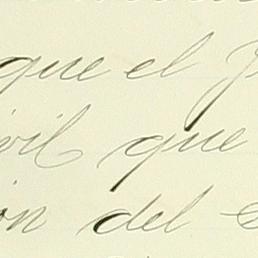 que el
vil que
ón del